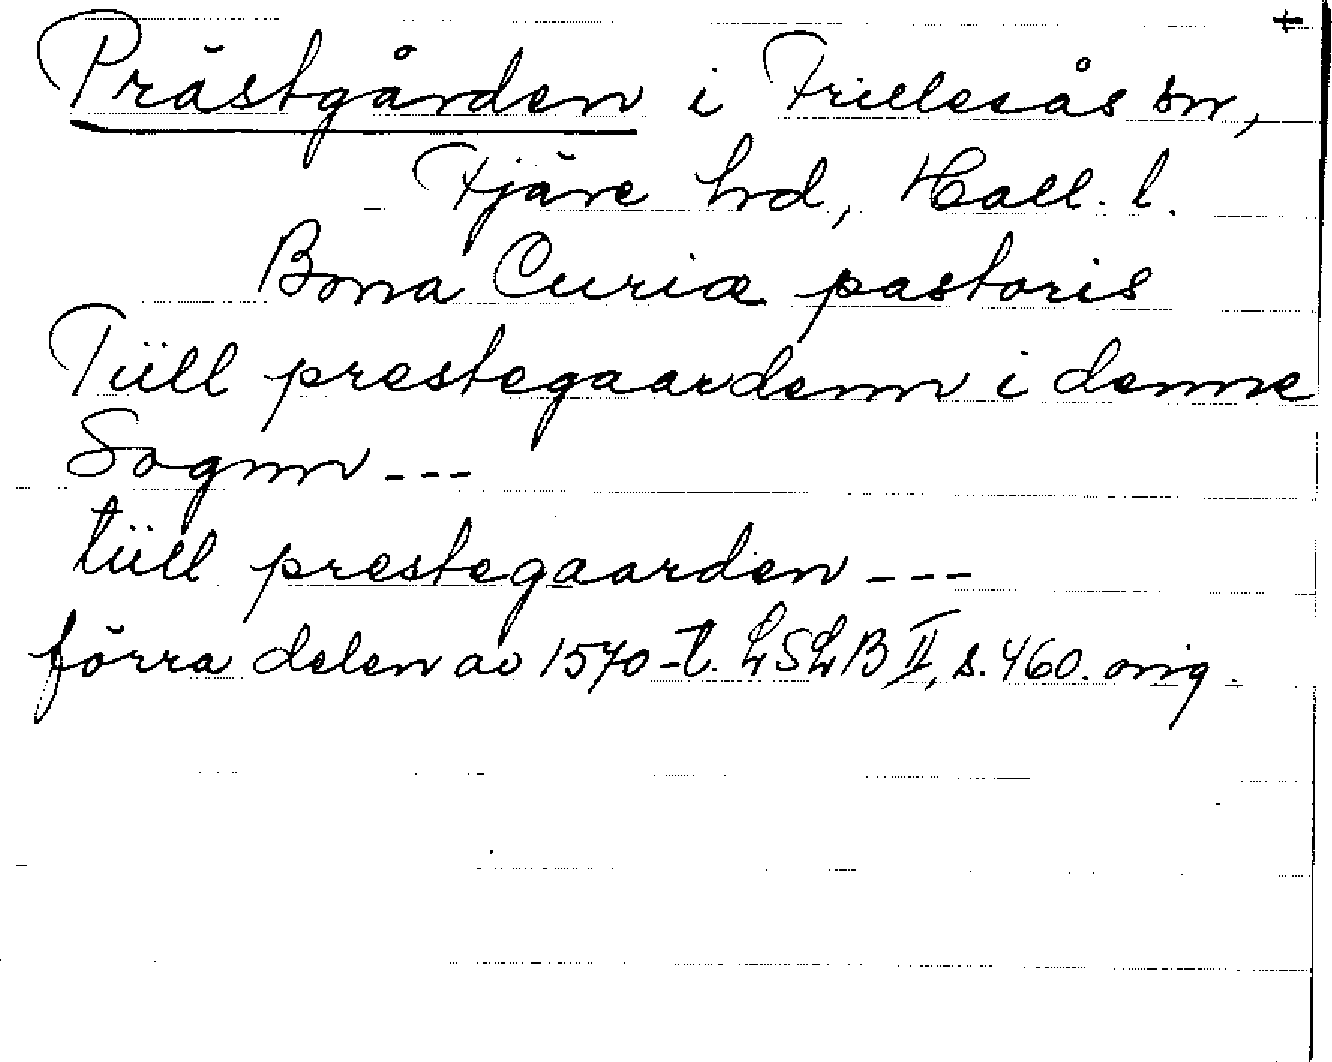 Prästgården i Frillesås sn,
Fjäre hrd, Hall. l.
Bona Curiæ pastoris
Tüll prestegaardenn i denne
Sognn ---
tüll prestegaarden ---
förra delen av 1570-t. LSLB II, s. 460. orig.